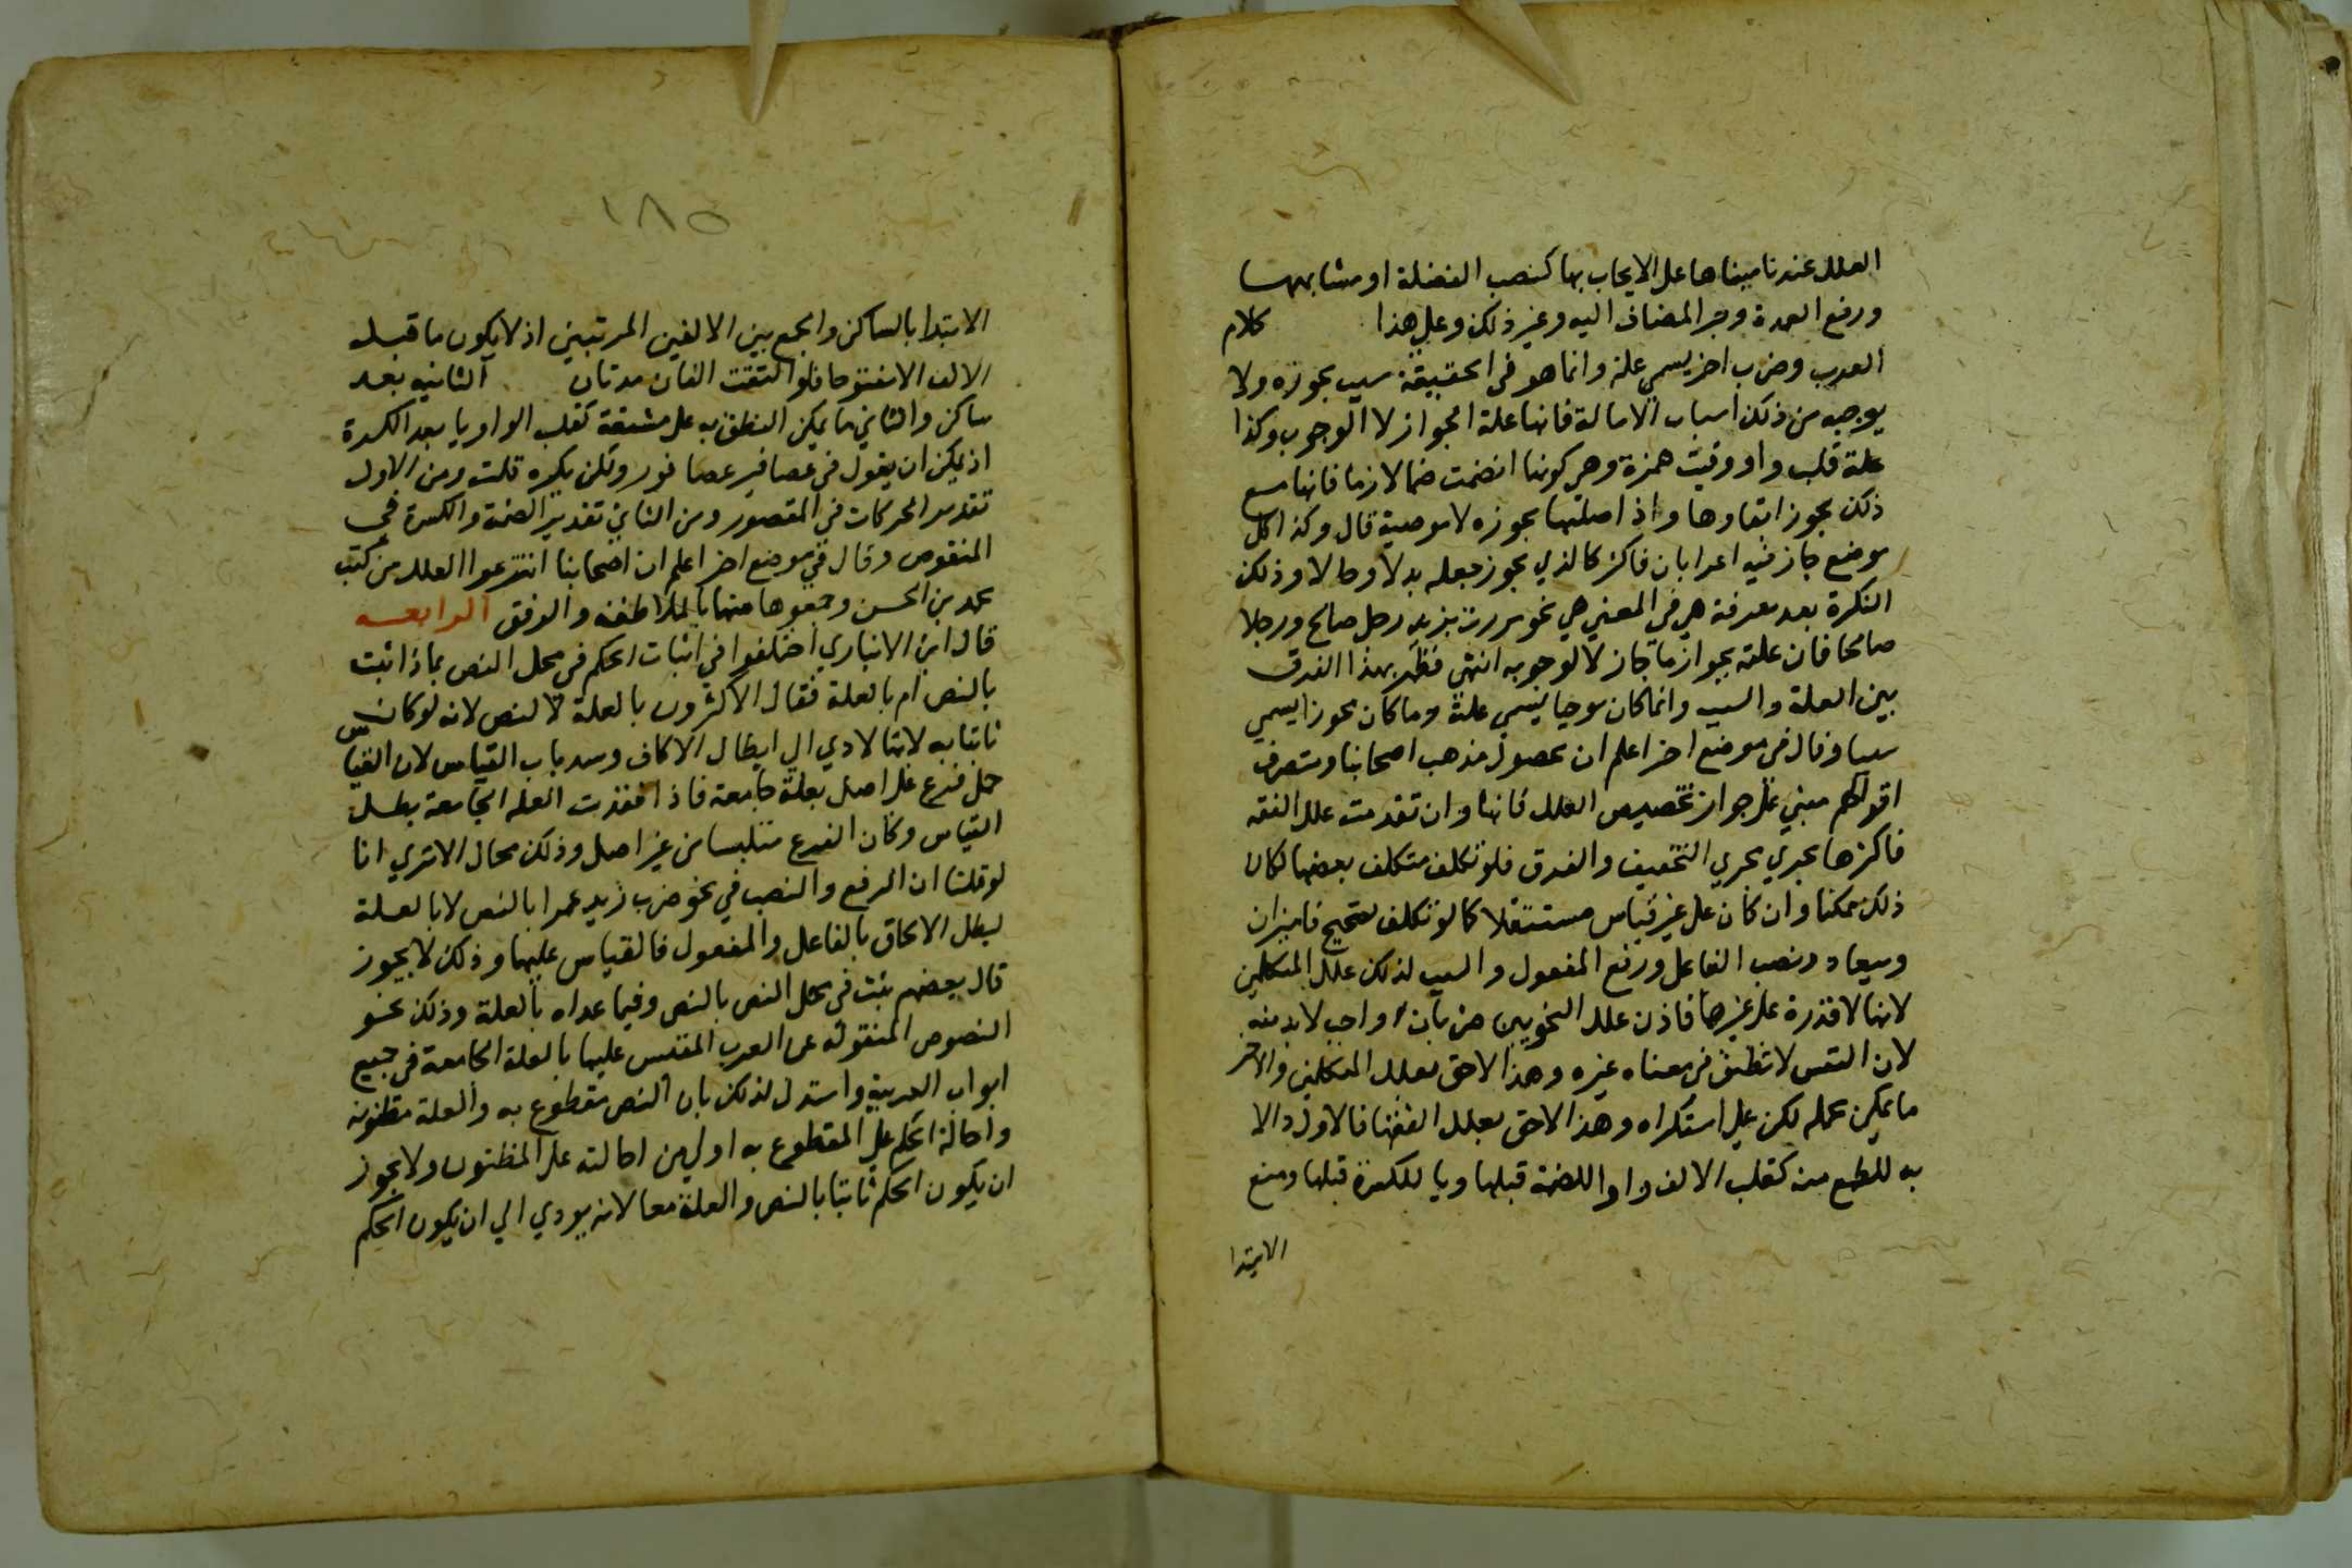 العلل عندنا مبناها على الايجاب بها كنصب الفضلة او مشابهها
ورفع العمدة وجر المضاف اليه وغير ذلك وعلى هذا كلام
العرب وضرب اخر يسمي علة وانما هو في الحقيقة سبب يجوزه ولا
يوجبه من ذلك اسباب الامالة فانها علة الجواز لا الوجوب وكذا
علة قلب واو وقيت همزة وهي كونها انضمت ضما لازما فانها مع
ذلك يجوز ابقاوها واذ اصليتها مجوزه لا موجبة قال وكذا كل
موضع جاز فيه اعرابان فاكثر كالذي يجوز جعله بدلا وحالا وذلك
النكرة بعد معرفة هي في المعني هي نحو مررت بزيد رجل صالح ورجلا
صالحا فان علته بجواز ما جاز لا لوجوبه انتهى فظهر بهذا الفرق
بين العلة والسبب وانما كان موجبا يسمي علة وما كان مجوزا يسمي
سببا وقال في موضع اخر اعلم ان محصول مذهب اصحابنا ومتصرف
اقوالهم مبني على جواز تخصيص العلل فانها وان تقدمت علل الفقه
فاكثرها يجري مجري التخفيف والفرق فلو تكلف متكلف بعضها لكان
ذلك ممكنا وان كان على غير قياس مستثقلا كما لو تكلف تصحيح فا ميزان
وميعاد ونصب الفاعل ورفع المفعول والسبب لذلك علل المتكلمين
لانها لا قدرة على غيرها فاذن علل النحويين ضربان واجب لا بد منه
لان النفس لا تطيق في معناه غيره وهذا لاحق بعلل المتكلمين والاخر
ما يمكن تحمله لكن على استكراه وهذا لاحق بعلل الفقها فالاول والا
به للطبع منه كقلب الالف واوا للضمة قبلها ويا للكسرة قبلها ومنع
الابتدا
١٨٥
الابتدا بالساكن والجمع بين الالفين المرتبتين اذ لا يكون ما قبله
الالف الا مفتوحا فلو التقت الفان مدتان الثانيه بعد
ساكن والثاني ما يمكن النطق به على مشقة كقلب الواو يا بعد الكسرة
اذ يمكن ان يقول في عصافير عصافور ولكن يكره قلت ومن الاول
تقدير الحركات في المقصور ومن الثاني تقدير الضمة والكسرة في
المنقوص وقال في موضع اخر اعلم ان اصحابنا انتزعوا العلل من كتب
محمد بن الحسن وجمعوها منها بالملاطفه والرفق الرابعه
قال ابن الانباري اختلفوا في اثبات الحكم في محل النص بماذا ثبت
بالنص ام بالعلة فقال الاكثرون بالعلة لا لنص لانه لو كان
ثابتا به لا بها لادي الي ابطال الالحاق وسد باب القياس لان القياس
حمل فرع على اصل بعلة جامعة فاذا فقدت العله الجامعة بطل
القياس وكان الفرع مقتبسا من غير اصل وذلك محال الا تري انا
لو قلنا ان الرفع والنصب في نحو ضرب زيد عمرا بالنص لا بالعلة
لبطل الالحاق بالفاعل والمفعول فالقياس عليها وذلك لا يجوز
قال بعضهم يثبت في محل النص بالنص وفيما عداه بالعلة وذلك نحو
النصوص المنقوله عن العرب المقيس عليها بالعلة الجامعة في جميع
ابواب العربية واستدل لذلك بان النص مقطوع به والعلة مظنونه
واحالة الحكم على المقطوع به اولي من احالته على المظنون ولا يجوز
ان يكون الحكم ثابتا بالنص والعلة معا لانه يودي الي ان يكون الحكم